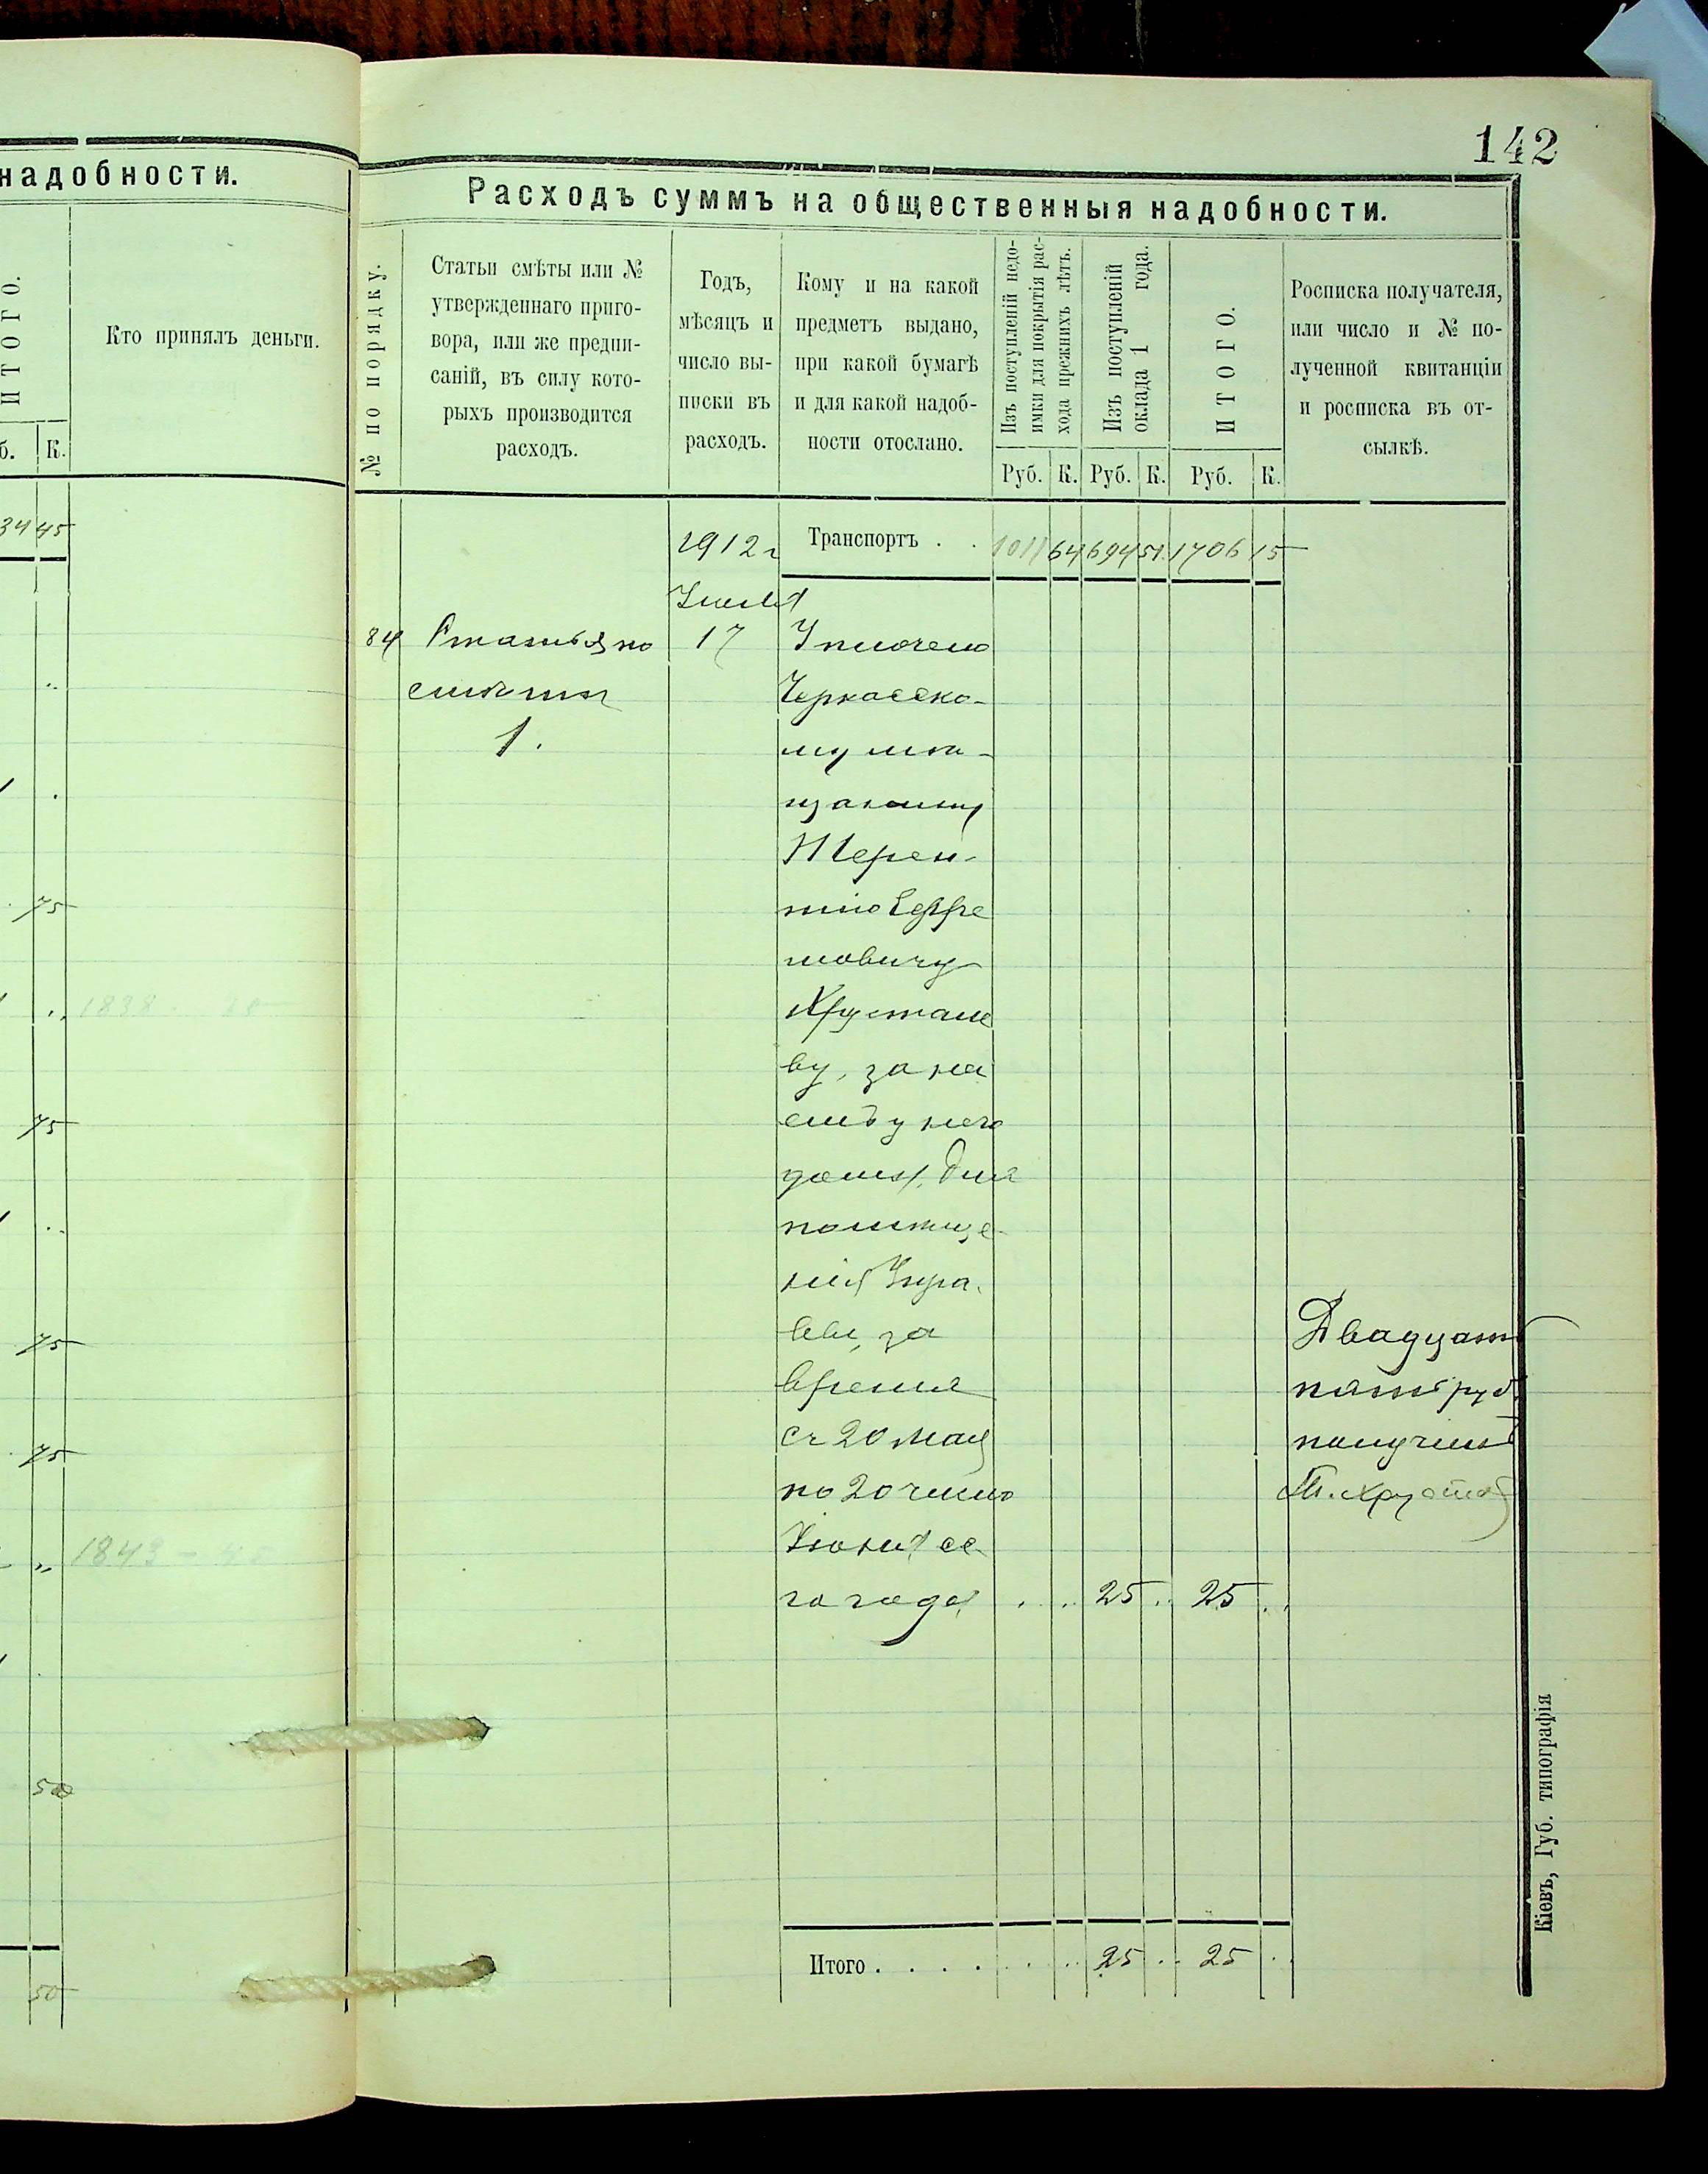 142
надобности.
ИТОГО.
Кто принялъ деньги.
б. К.
34 45
75
1838
75
75
75
1843 -
50
50
Расходъ суммъ на общественныя надобности.
№ по порядку.
Статьи смѣты или №
утвержденнаго приго-
вора, или же предпи-
саній, въ силу кото-
рыхъ производится
расходъ.
Годъ,
мѣсяцъ и
число вы-
писки въ
расходъ.
Кому и на какой
предметъ выдано,
при какой бумагѣ
и для какой надоб-
ности отослано.
Изъ поступленій недо-
имки для покрытія рас-
хода прежнихъ лѣтъ.
Изъ поступленій
оклада 1 года.
ИТОГО.
Росписка получателя,
или число и № по-
лученной квитанціи
и росписка въ от-
сылкѣ.
Руб. К. Руб. К. Руб. К.
1912 г
Транспортъ . . 1011 64 694 51 1706 15
84 Статья по
смѣтѣ
1.
17
Уплочено
Черкасско-
му мѣ-
щанину
Терен-
тію Ефре
мовичу
Хрустале
ву, за на
емъ у него
дома, для
помѣще-
нія Упра-
вы, за
время
съ 20 Мая
по 20 число
Іюня се-
го года . . . 25 . . 25 . .
Двадцать
пять руб.
получилъ
Т. Хрустал
Итого . . . . . . . 25 . . 25 . .
Кіевъ, Губ. типографія